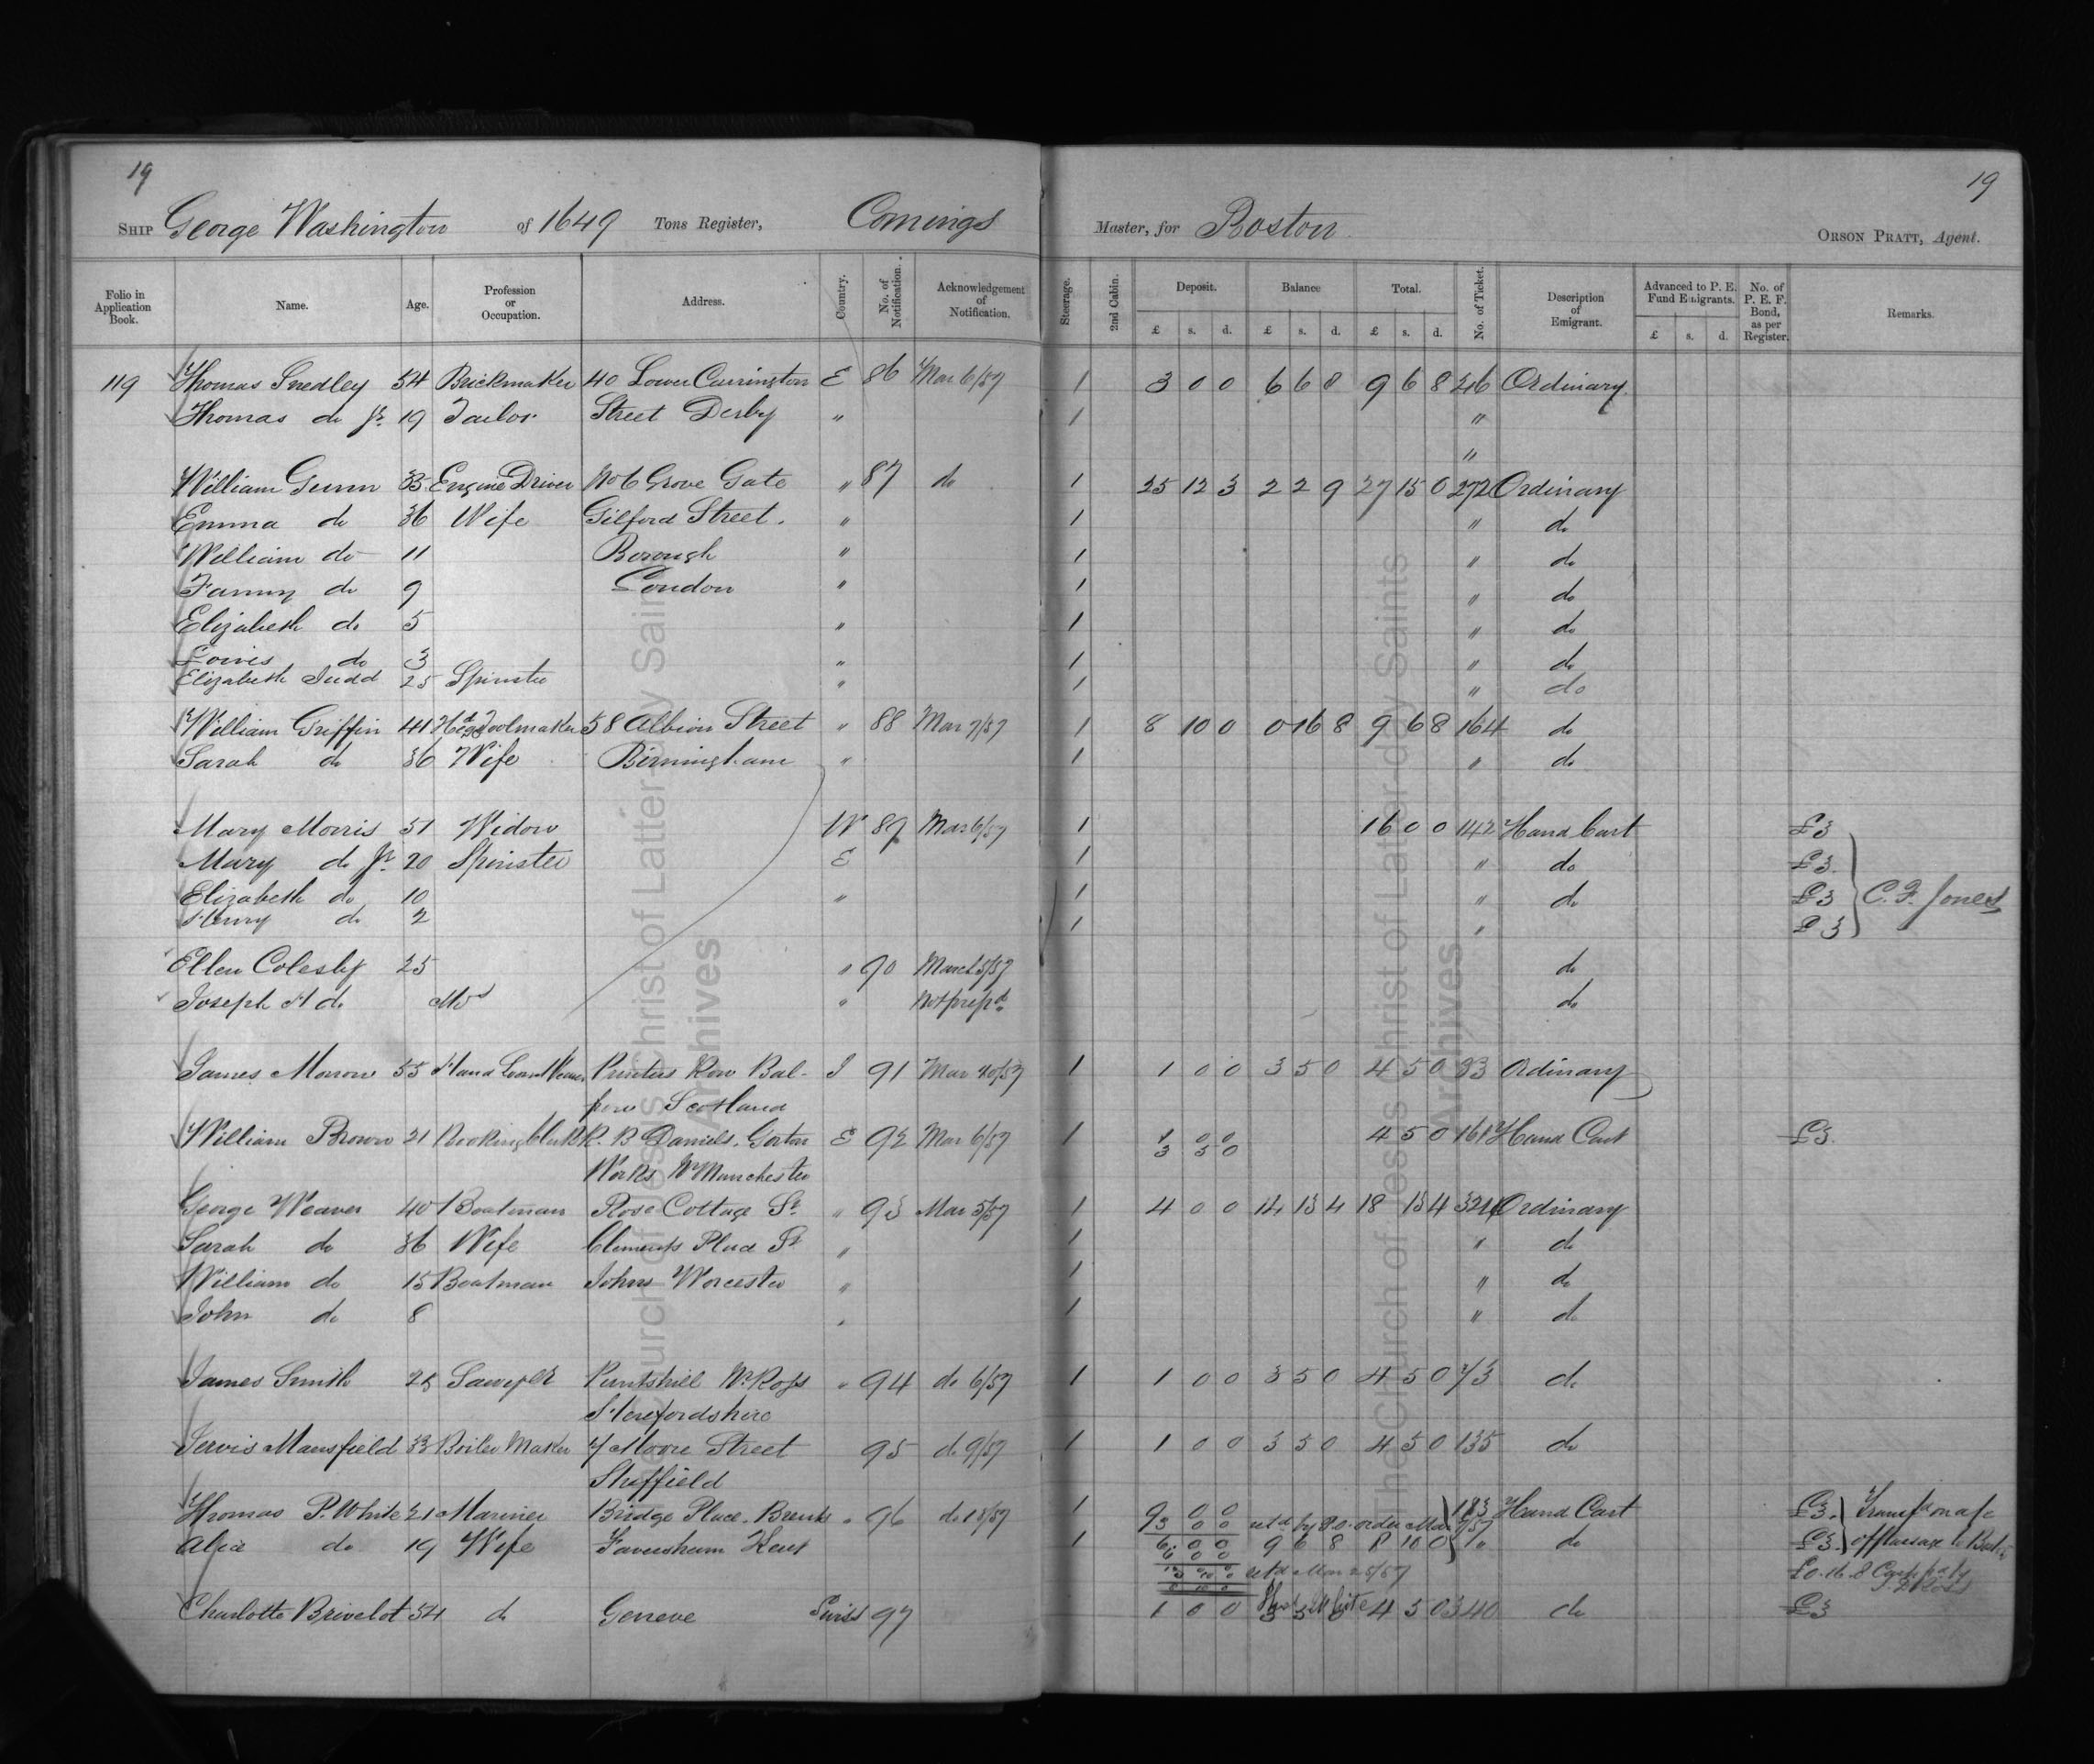 19
19
SHIP George Washington of 1649 Tons Register, Comings Master, for Boston ORSON PRATT, Agent.
Folio in Application Book. Name. Age. Profession or Occupation. Address. Country. No. of Notification. Acknowledgement of Notification. Steerage. 2nd Cabin. Deposit. Balance Total. No. of Ticket. Description of Emigrant. Advanced to P. E. Fund Emigrants. No. of P. E. F. Bond, as per Register. Remarks.
£ s. d. £ s. d. £ s. d. £ s. d.
119 Thomas Smedley 54 Brickmaker 40 Lower Carrington E 86 Mar 6/57 1 3 0 0 6 6 8 9 6 8 246 Ordinary
Thomas do Jr 19 Tailor Street Derby " 1 "
"
William Gunn 35 Engine Driver No 6 Grove Gate " 87 do 1 25 12 3 2 2 9 27 15 0 272 Ordinary
Emma do 36 Wife Gilford Street. " 1 " do
William do 11 Borough " 1 " do
Fanny do 9 London " 1 " do
Elizabeth do 5 " 1 " do
Louis do 3 " 1 " do
Elizabeth Judd 25 Spinster " 1 " do
William Griffin 41 Toolmaker 58 Albion Street " 88 Mar 7/57 1 8 10 0 0 16 8 9 6 8 164 do
Sarah do 36 Wife Birmingham " 1 " do
Mary Morris 51 Widow W 89 Mar 6/57 1 16 0 0 142 Hand Cart £3
Mary do Jr 20 Spinster E 1 " do £3
Elizabeth do 10 " 1 " do £3 C. F. Jones
Henry do 2 1 " £3
Ellen Colesby 25 " 90 March 5/57 do
Joseph H do " Not prepd do
James Morrow 55 Hand Loom Weaver Printers Row Bal- I 91 Mar 20/57 1 1 0 0 3 5 0 4 5 0 93 Ordinary
fron Scotland
William Brown 21 Booking Clerk R. B Daniels. Gorton E 92 Mar 6/57 1 1 0 0 4 5 0 161 Hand Cart £3
3 5 0
Works Nr Manchester
George Weaver 40 Boatman Rose Cottage St " 93 Mar 5/57 1 4 0 0 14 13 4 18 13 4 324 Ordinary
Sarah do 36 Wife Clements Place St " 1 " do
William do 15 Boatman Johns Worcester " 1 " do
John do 8 1 " do
James Smith 25 Sawyer Nr Ross " 94 do 6/57 1 1 0 0 3 5 0 4 5 0 73 do
Herefordshire
Jervis Mansfield 33 Boiler Maker 7 Moore Street 95 do 9/57 1 1 0 0 3 5 0 4 5 0 135 do
Sheffield
Thomas P. White 21 Mariner Bridge Place. Brents " 96 do 13/57 1 9 0 0 183 Hand Cart £3
3 0 0 retd by P.O. order Mar 7/57
Alice do 19 Wife Faversham Kent 1 6 0 0 9 6 8 8 10 0 " do £3
6 0 0
retd Mar 25/57 £0.16.8
Charlotte Brivelot 54 do Geneve Swiss 97 1 0 0 3 5 0 4 5 0 340 do £3
The Church of Jesus Christ of Latter-day Saints
Archives
The Church of Jesus Christ of Latter-day Saints
Archives